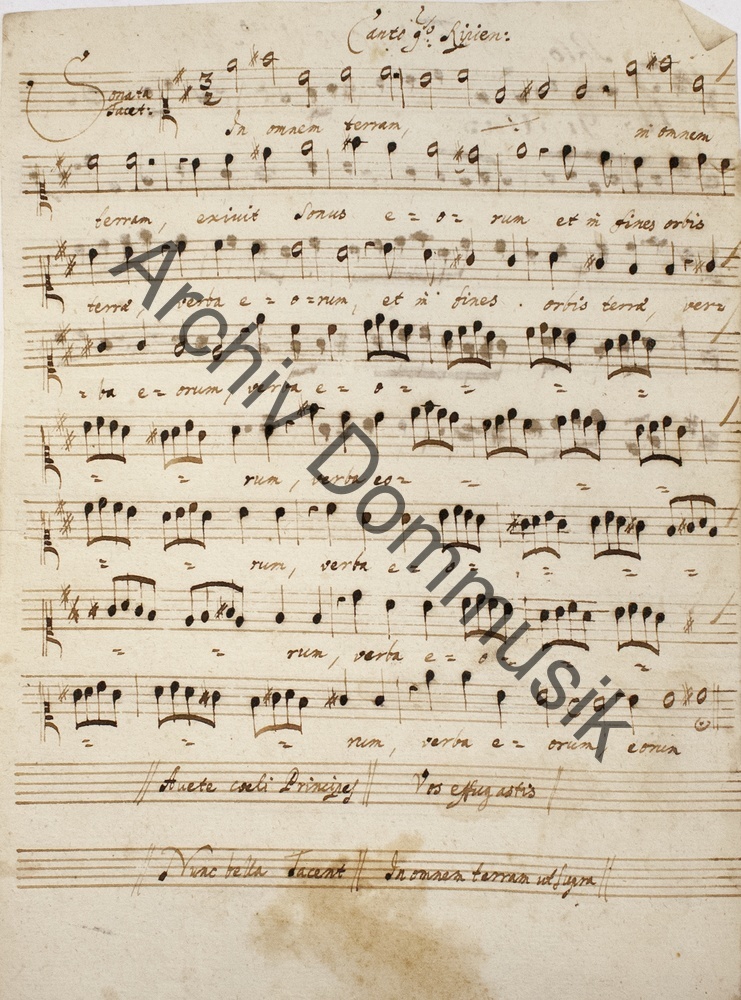 Canto 
Sonata
Tacet:
3
2
In omnem terram, in omnem
terram, exivit sonus e = o = rum et in fines orbis
terrae, verba e = o = rum, et in fines . orbis terrae, ver=
= ba e = orum, verba e = o = = = =
= = rum, verba eo = = = =
= = rum, verba e = o = = = =
= = rum, verba e = o = = =
= = = rum, verba e = orum eorum
Avete coeli Principes Vos effugastis
Nunc bella Tacent In omnem terram ut supra
Archiv Dommusik